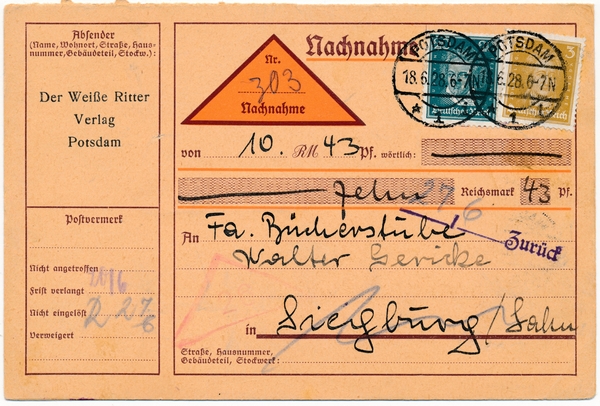 Absender
(Name, Wohnort, Straße, Haus-
nummer, Gebäudeteil, Stockw.):
Der Weiße Ritter
Verlag
Potsdam
Nr.
303
Nachnahme
Nachnahme
POTSDAM
18.6.28.6-7N
* 1 *
Deutsches Reich
POTSDAM
6.28.6-7N
1
3
Deutsches Reich
von 10. RM 43 Pf. wörtlich:
Zehn Reichsmark 43 Pf.
27 6
An Fa. Bücherstube
Zurück
Walter Gericke
in Siegburg/Lahn
Straße, Hausnummer,
Gebäudeteil, Stockwerk:
Postvermerk
Nicht angetroffen
Frist verlangt
Nicht eingelöst
27/6
Verweigert